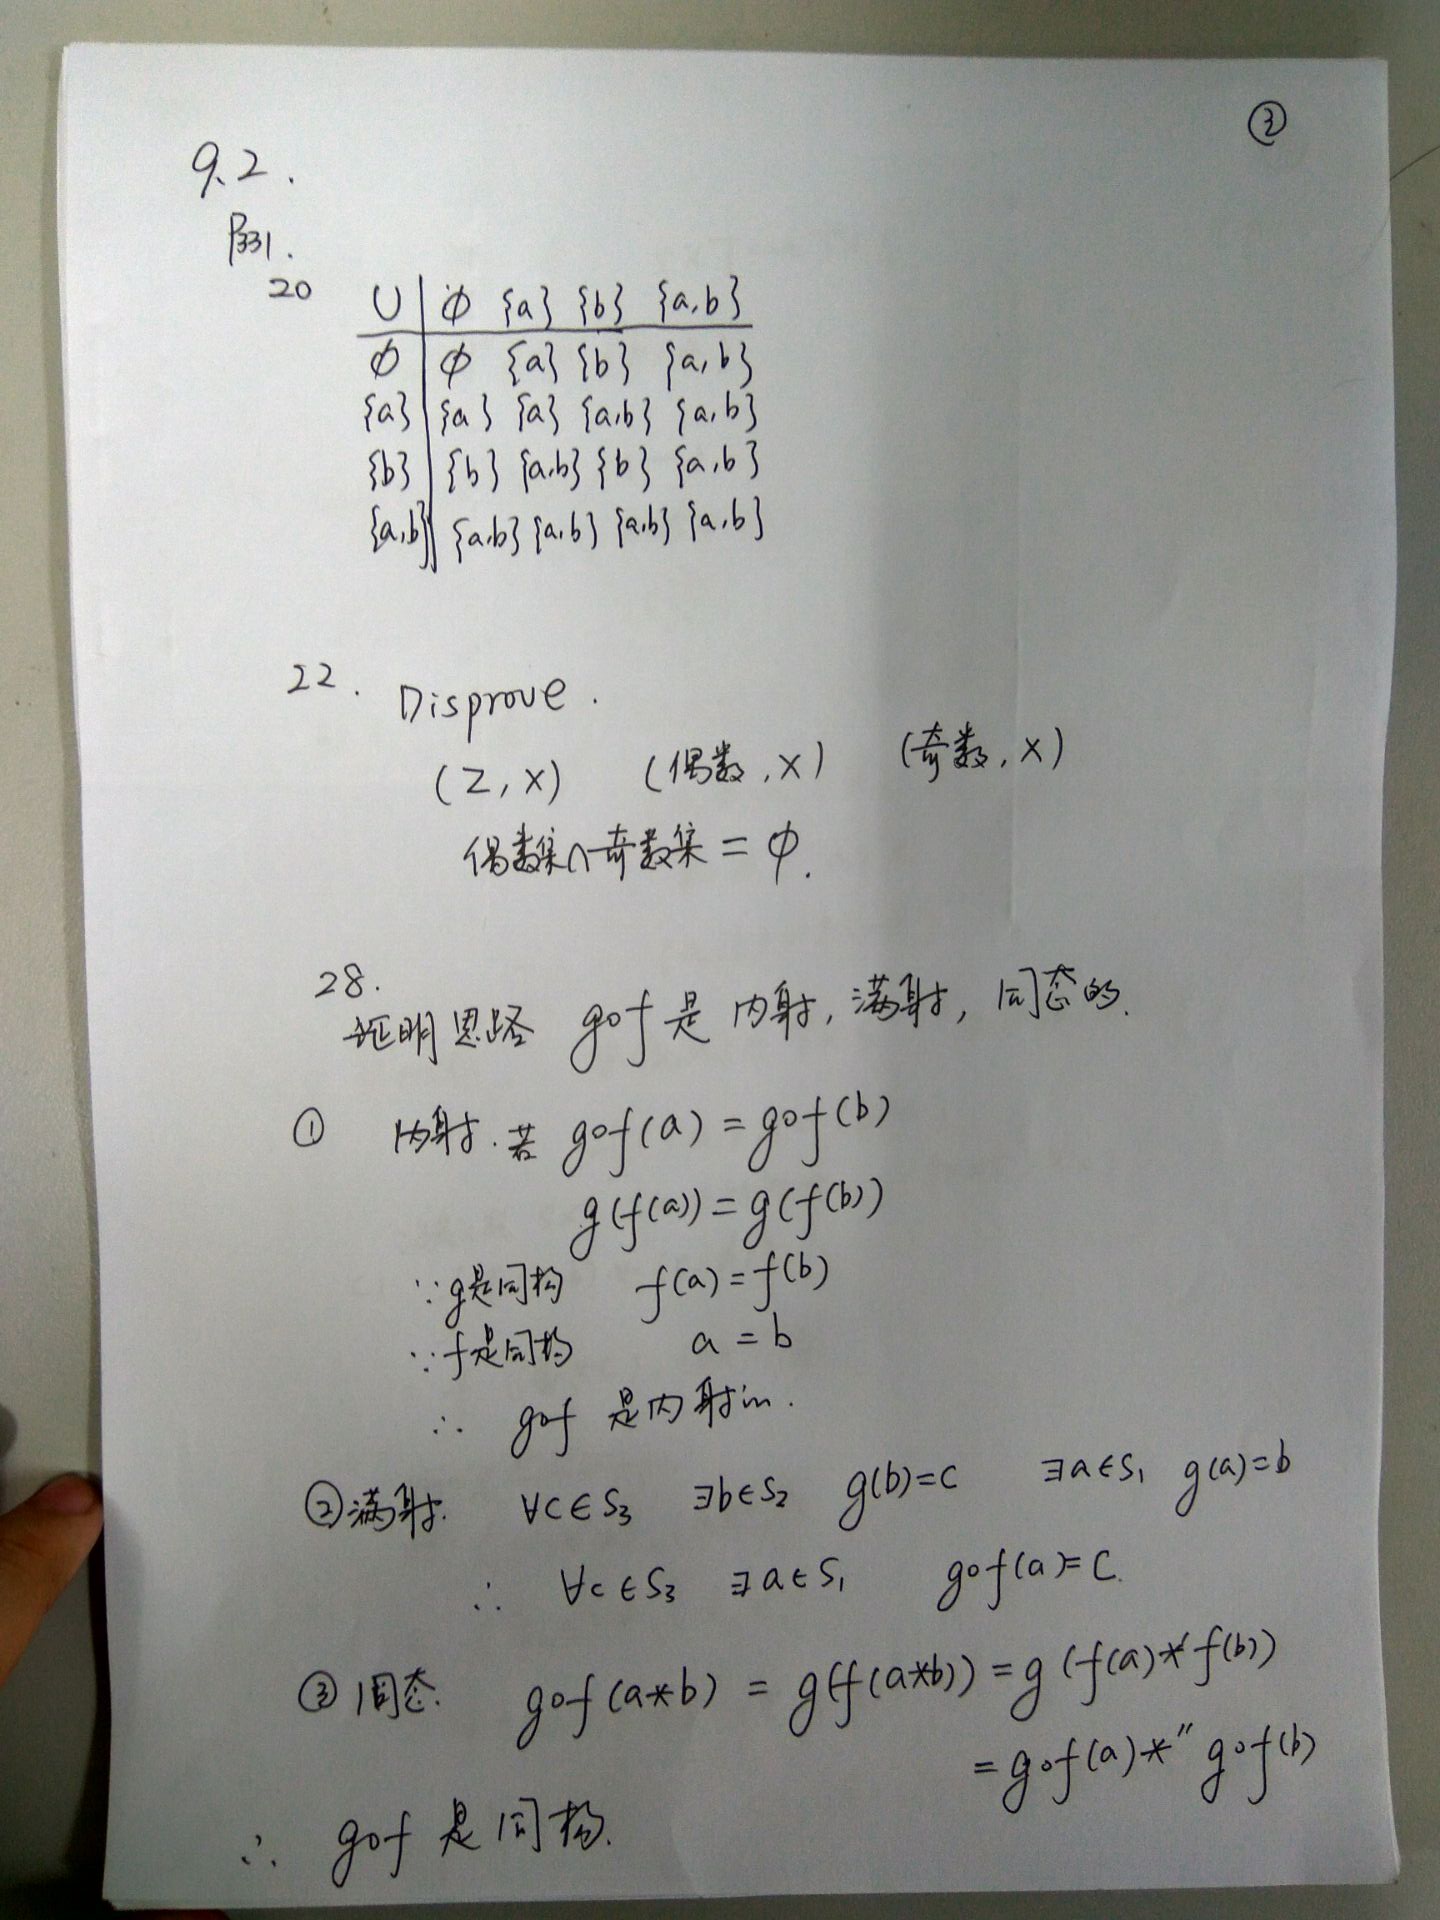 ②
9.2.
P331.
20
∪ | φ {a} {b} {a,b}
φ | φ {a} {b} {a,b}
{a} | {a} {a} {a,b} {a,b}
{b} | {b} {a,b} {b} {a,b}
{a,b} | {a,b} {a,b} {a,b} {a,b}
22. Disprove.
(Z,×) (偶数,×) (奇数,×)
偶数集∩奇数集=φ.
28.
证明思路 g∘f是内射,满射,同态的.
① 内射.若 g∘f(a)=g∘f(b)
g(f(a))=g(f(b))
∵g是同构 f(a)=f(b)
∵f是同构 a=b
∴ g∘f 是内射in.
②满射. ∀c∈S₃ ∃b∈S₂ g(b)=c ∃a∈S₁ g(a)=b
∴ ∀c∈S₃ ∃a∈S₁ g∘f(a)=c.
③同态. g∘f(a*b)=g(f(a*b))=g(f(a)*'f(b))
=g∘f(a)*''g∘f(b)
∴ g∘f是同构.